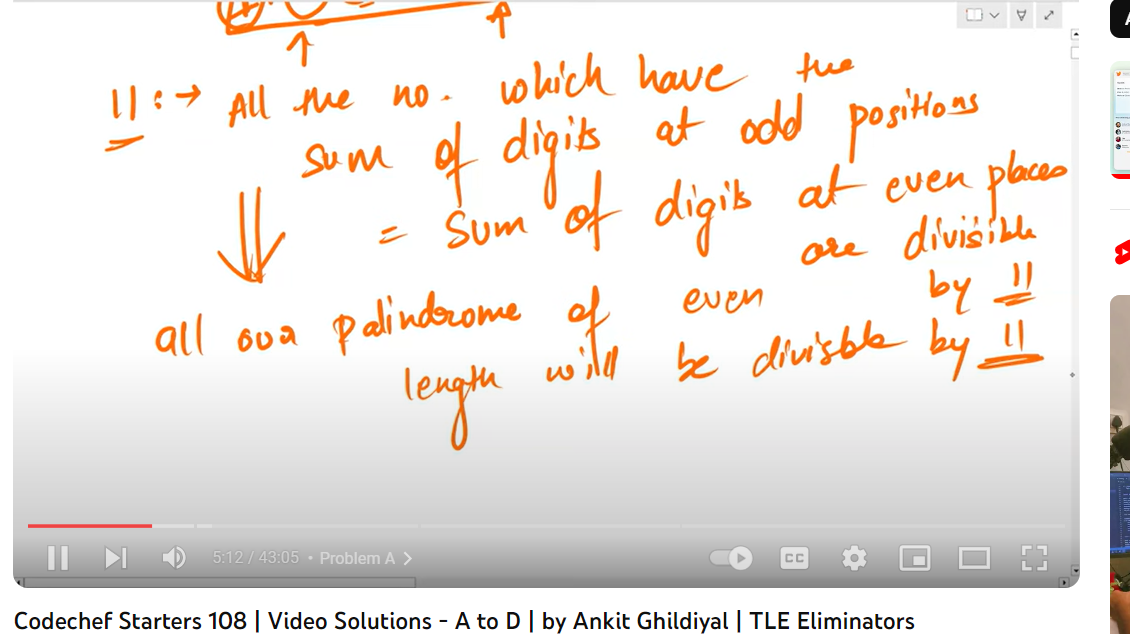 11 :→ All the no. which have the
sum of digits at odd positions
= Sum of digits at even places
are divisible
by 11
all our palindrome of even
length will be divisble by 11
5:12 / 43:05 • Problem A >
CC
Codechef Starters 108 | Video Solutions - A to D | by Ankit Ghildiyal | TLE Eliminators